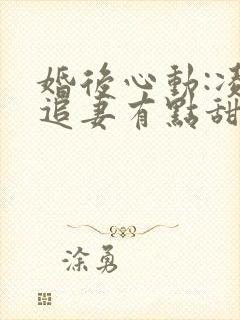 婚後心動:凌
追妻有點甜
涂勇